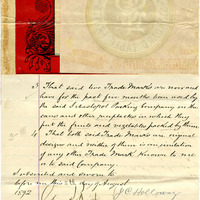 3. That said two Trade Marks are now and
have for the past five months been used by
the said Sevastopol Packing Company on the
cans and other receptacles in which they
put the fruits and vegetables packed by them.
4. That both said Trade Marks are original
designs and neither of them is an imitation
of any other Trade Mark known to me
or to said Company.
Subscribed and sworn to
before me this day of August
1892
J C Holloway